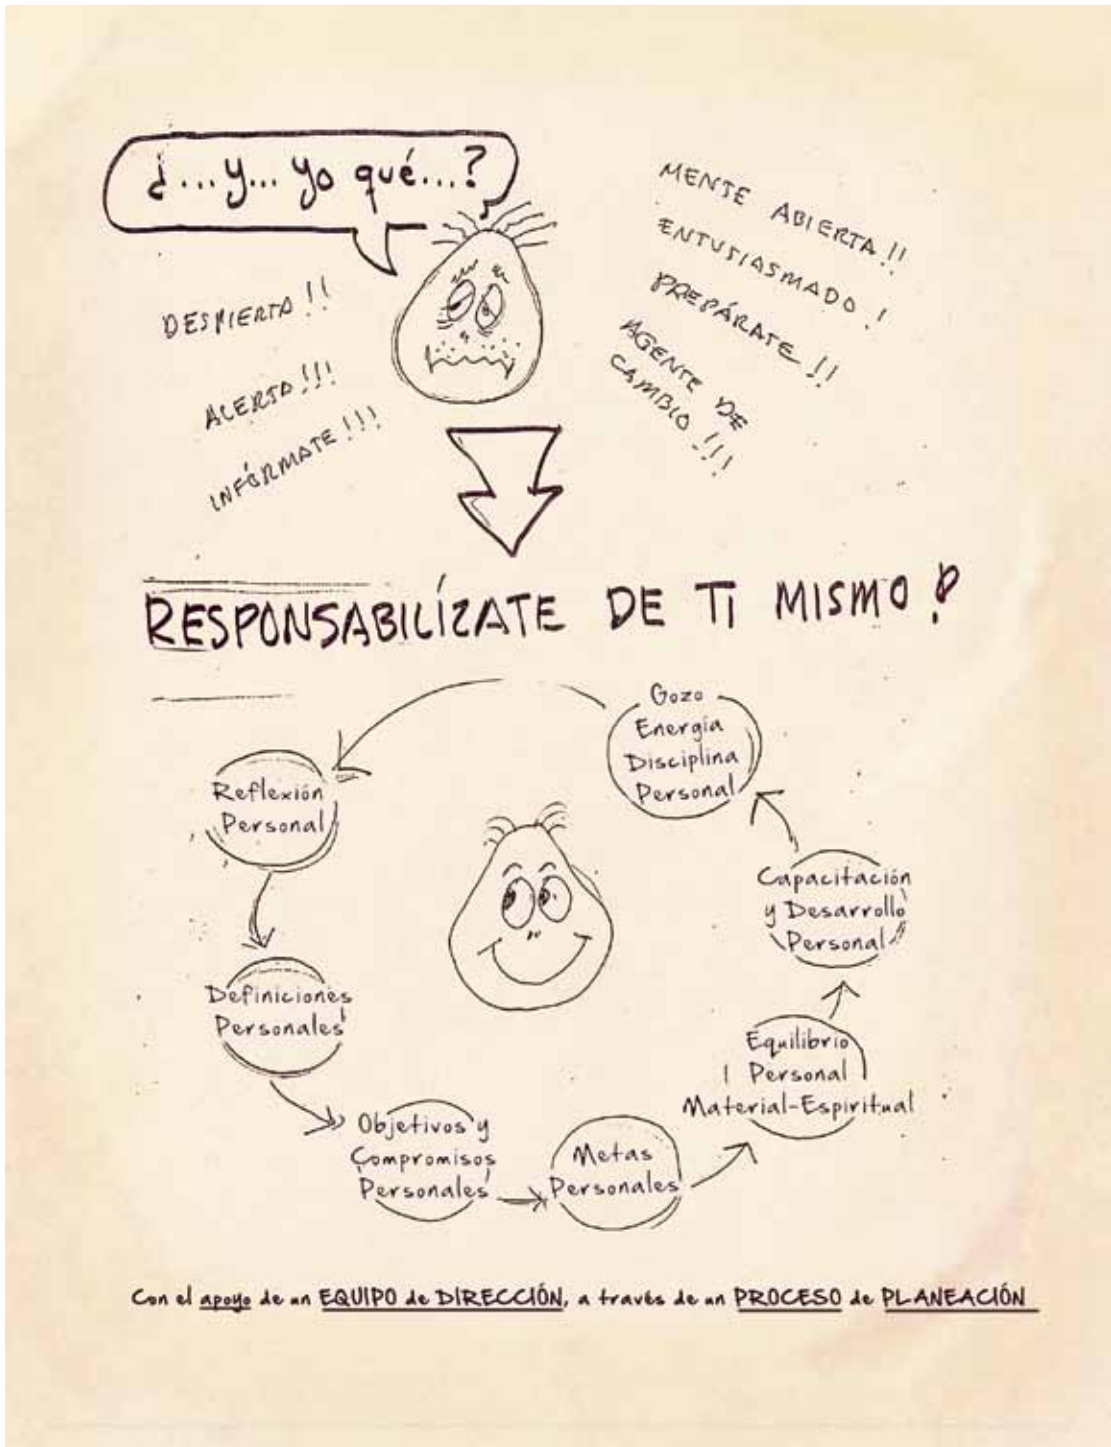 ¿...y... yo qué...?
DESPIERTA!!
ALERTA!!!
INFÓRMATE!!!
MENTE ABIERTA!!
ENTUSIASMADO!
PREPÁRATE!!
AGENTE DE
CAMBIO!!!
RESPONSABILÍZATE DE TI MISMO!
Gozo
Energía
Disciplina
Personal
Reflexión
Personal
Definiciones
Personales
Objetivos y
Compromisos
Personales
Metas
Personales
Equilibrio
Personal
Material-Espiritual
Capacitación
y Desarrollo
Personal
Con el apoyo de un EQUIPO de DIRECCIÓN, a través de un PROCESO de PLANEACIÓN